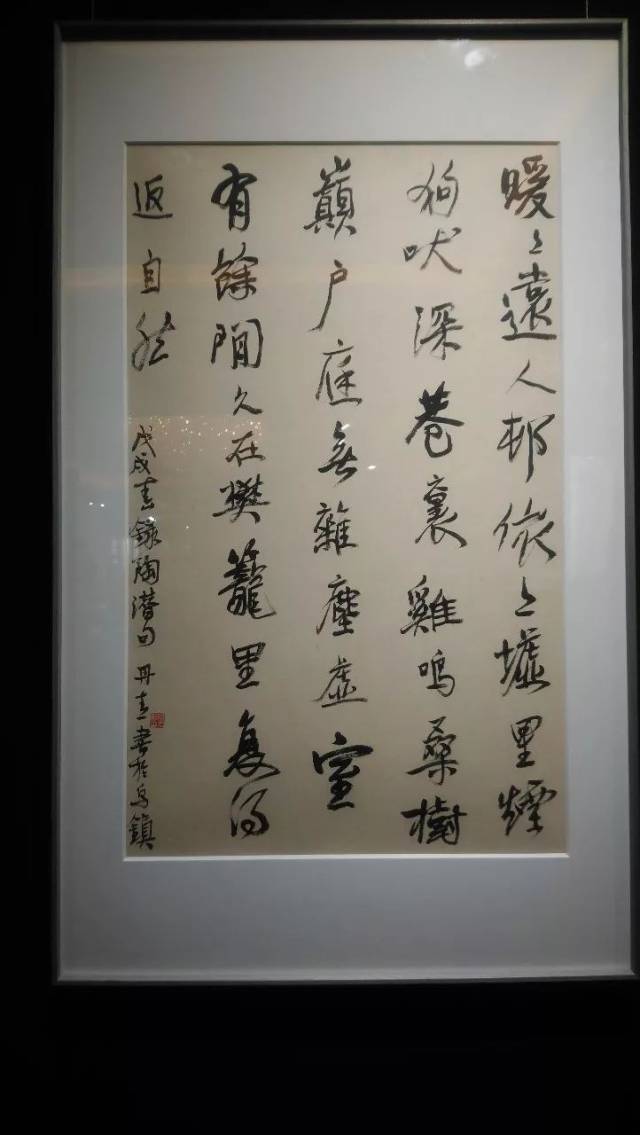 暖〻遠人邨依〻墟里煙
狗吠深巷裏雞鳴桑樹
巔户庭無雜塵虛室
有餘閒久在樊籠里复得
返自然
戊戌春錄陶潜句 丹青書於烏鎮